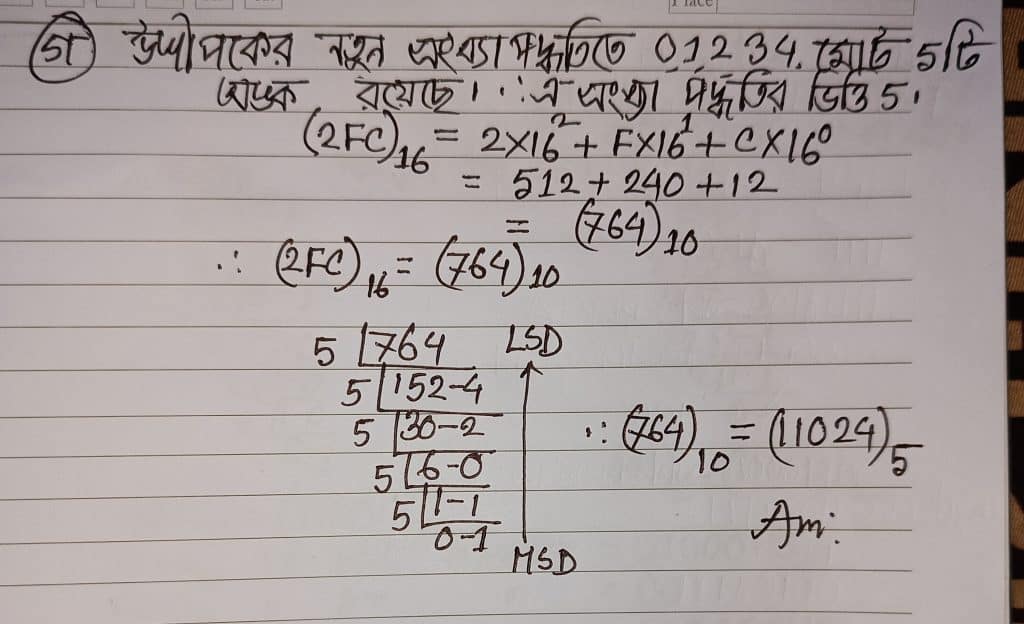 Place
গ) উদ্দীপকের নতুন সংখ্যা পদ্ধতিতে 0,1,2,3,4, মোট 5টি
অংক রয়েছে। ∴ এ সংখ্যা পদ্ধতির ভিত্তি 5।
(2FC)₁₆ = 2×16² + F×16¹ + C×16⁰
= 512 + 240 + 12
= (764)₁₀
∴ (2FC)₁₆ = (764)₁₀
5 | 764 LSD
5 | 152-4
5 | 30-2
∴ (764)₁₀ = (11024)₅
5 | 6-0
5 | 1-1
0-1
Ans:
MSD